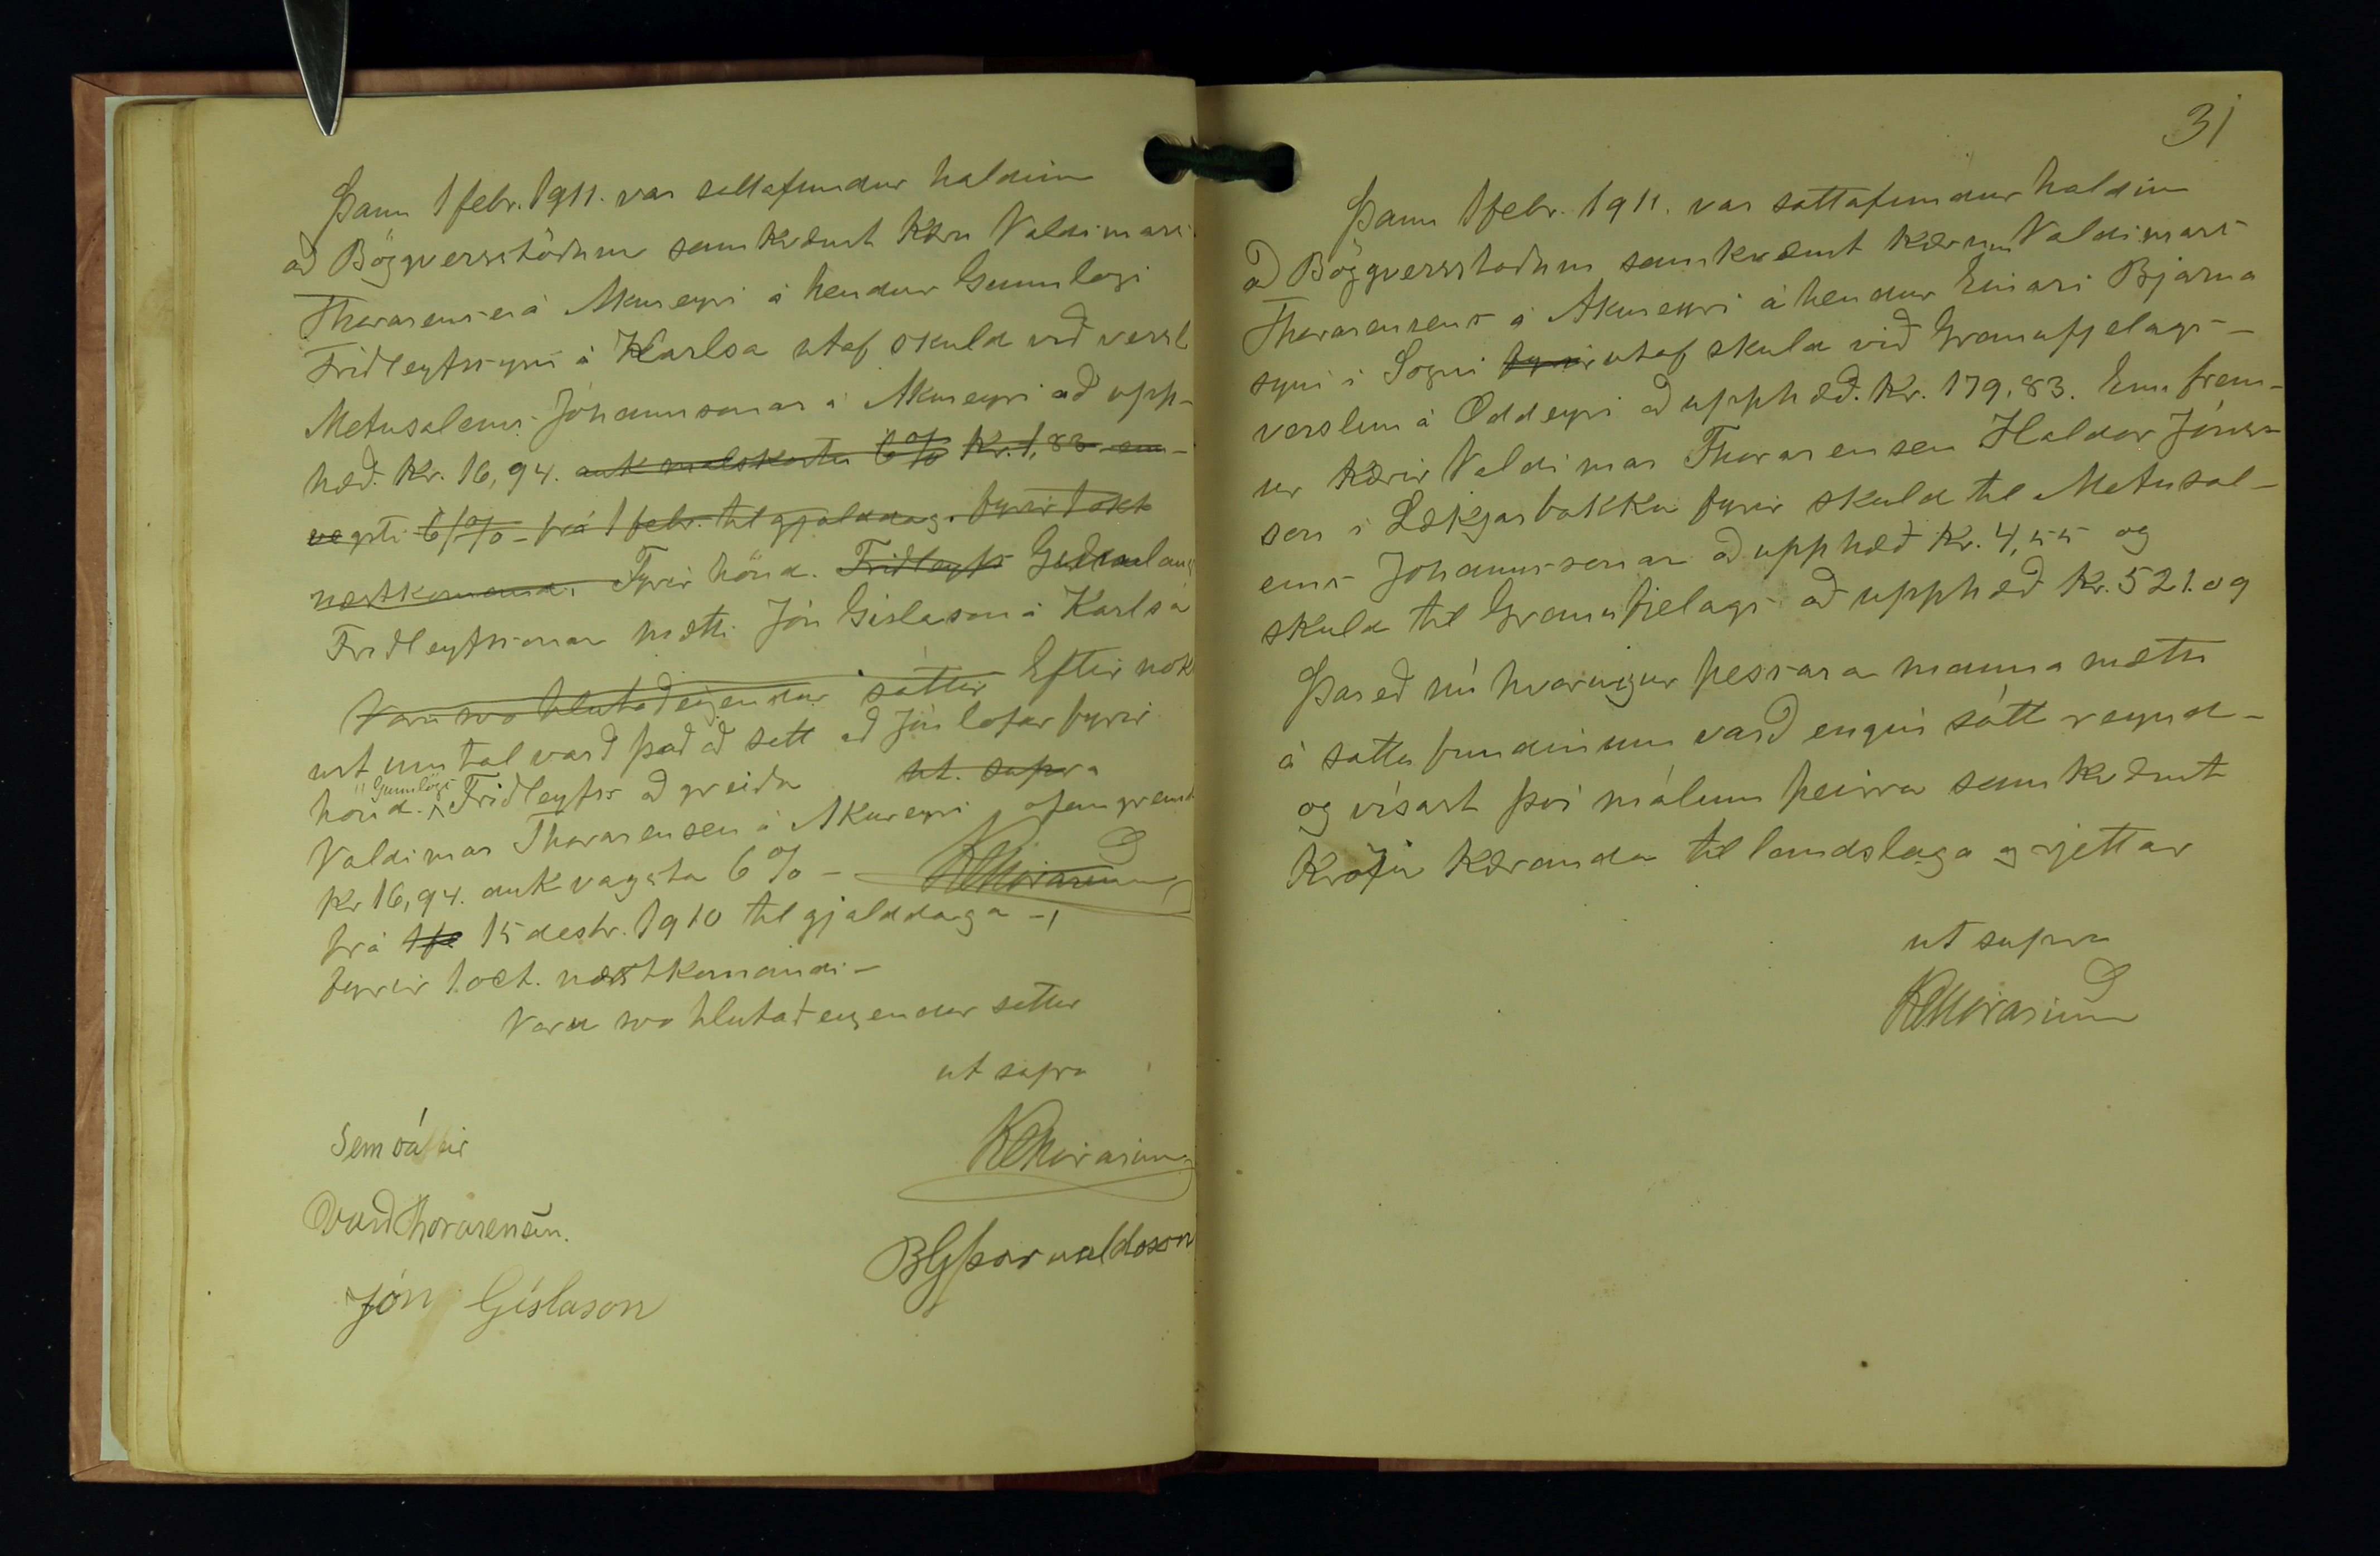 Þann 1 febr. 1911. var sattafundur haldinn
að Böggversstöðum samkvæmt Kæru Valdimars
Thorarensen á Akureyri á hendur Gunnlogi
Friðleyfssyni á Karlsa utaf skuld við versl
Metusalems Jóhannsonar á Akureyri að upp-
hæð. Kr. 16,94. auk malskosta 6% Kr. 1,83 enn-
vegsti 6% - frá 1 febr. til gjalddag. fyrir 1 okt
næstkomand. Fyrir hönd. Friðleyfs
Friðleyfssonar mætti Jón Gislason á Karlsá
Voru svo hlutaðeigendur sáttir Eftir nok
urt umtal varð það að sætt að Jón lofar fyrir
hönd. Gunnlögs Friðleyfss að greiða ut. supra
Valdimar Thorarensen á Akureyri ofangreind
Kr 16,94. auk vagsta 6% - KrThorarinn
frá 1 fe 15 desbr. 1910 til gjalddaga -,
fyrir 1 oct. næstkomandi -
Voru svo hlutaðeigendur sattir
ut supra
Sem sáttir KrThorarinn
Vald Thorarensen. BGÞorvaldsson
Jón Gíslason
31
Þann 1 febr. 1911. var sattafundur haldinn
að Böggversstoðum samkvæmt Kærum Valdimars
Thorarensens á Akureyri á hendur Einari Bjarna
syni i Sogni fyrir utaf skuld við Granufjelags-
verslun á Oddeyri að upphæð. Kr. 179,83. Enn frem-
ur Kærir Valdimar Thorarensen Haldor Jóns-
son i Lækjarbakka fyrir skuld til Metusal-
ems Johannssonar að upphæð Kr. 4,55 og
skuld til Granufjelags að upphæð Kr. 521. og
Þareð nú hvorugur þessara manna mætti
á satta fundinum varð engin sátt reynd -
og vísast því málum þeirra samkvæmt
Kröfu Kæranda til landslaga og rjettar
ut supra
KrThorarinn